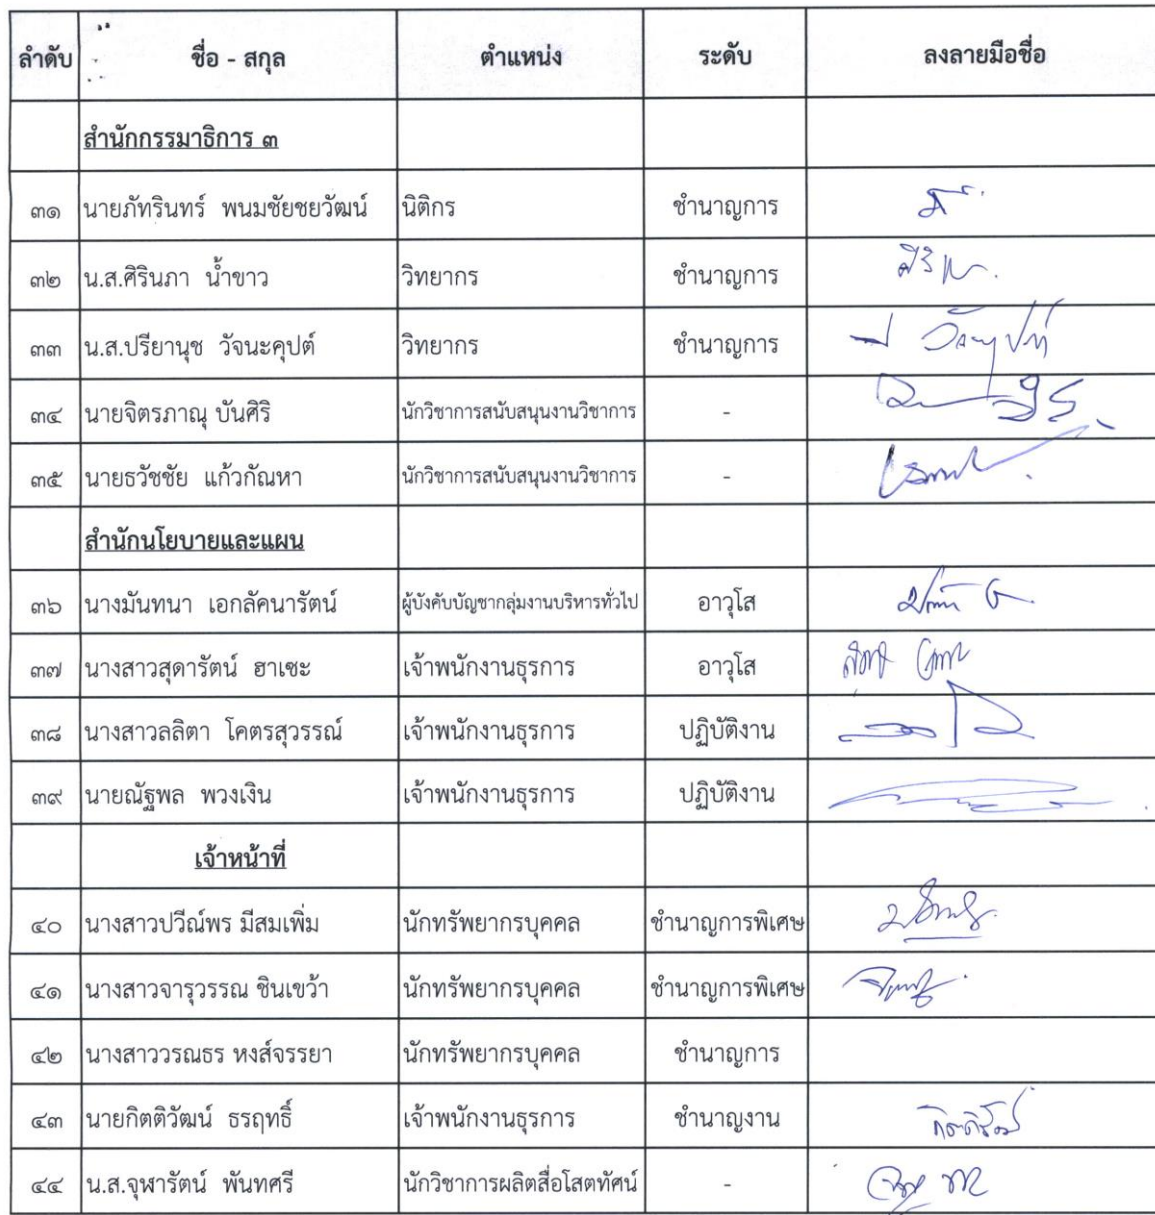 ลำดับ ชื่อ - สกุล ตำแหน่ง ระดับ ลงลายมือชื่อ
สำนักกรรมาธิการ ๓
๓๑ นายภัทรินทร์ พนมชัยชยวัฒน์ นิติกร ชำนาญการ
๓๒ น.ส.ศิรินภา น้ำขาว วิทยากร ชำนาญการ
๓๓ น.ส.ปรียานุช วัจนะคุปต์ วิทยากร ชำนาญการ
๓๔ นายจิตรภาณุ บันศิริ นักวิชาการสนับสนุนงานวิชาการ -
๓๕ นายธวัชชัย แก้วกัณหา นักวิชาการสนับสนุนงานวิชาการ -
สำนักนโยบายและแผน
๓๖ นางมันทนา เอกลัคนารัตน์ ผู้บังคับบัญชากลุ่มงานบริหารทั่วไป อาวุโส
๓๗ นางสาวสุดารัตน์ ฮาเซะ เจ้าพนักงานธุรการ อาวุโส
๓๘ นางสาวลลิตา โคตรสุวรรณ์ เจ้าพนักงานธุรการ ปฏิบัติงาน
๓๙ นายณัฐพล พวงเงิน เจ้าพนักงานธุรการ ปฏิบัติงาน
เจ้าหน้าที่
๔๐ นางสาวปวีณ์พร มีสมเพิ่ม นักทรัพยากรบุคคล ชำนาญการพิเศษ
๔๑ นางสาวจารุวรรณ ชินเขว้า นักทรัพยากรบุคคล ชำนาญการพิเศษ
๔๒ นางสาววรณธร หงส์จรรยา นักทรัพยากรบุคคล ชำนาญการ
๔๓ นายกิตติวัฒน์ ธรฤทธิ์ เจ้าพนักงานธุรการ ชำนาญงาน กิตติวัฒน์
๔๔ น.ส.จุฬารัตน์ พันทศรี นักวิชาการผลิตสื่อโสตทัศน์ -